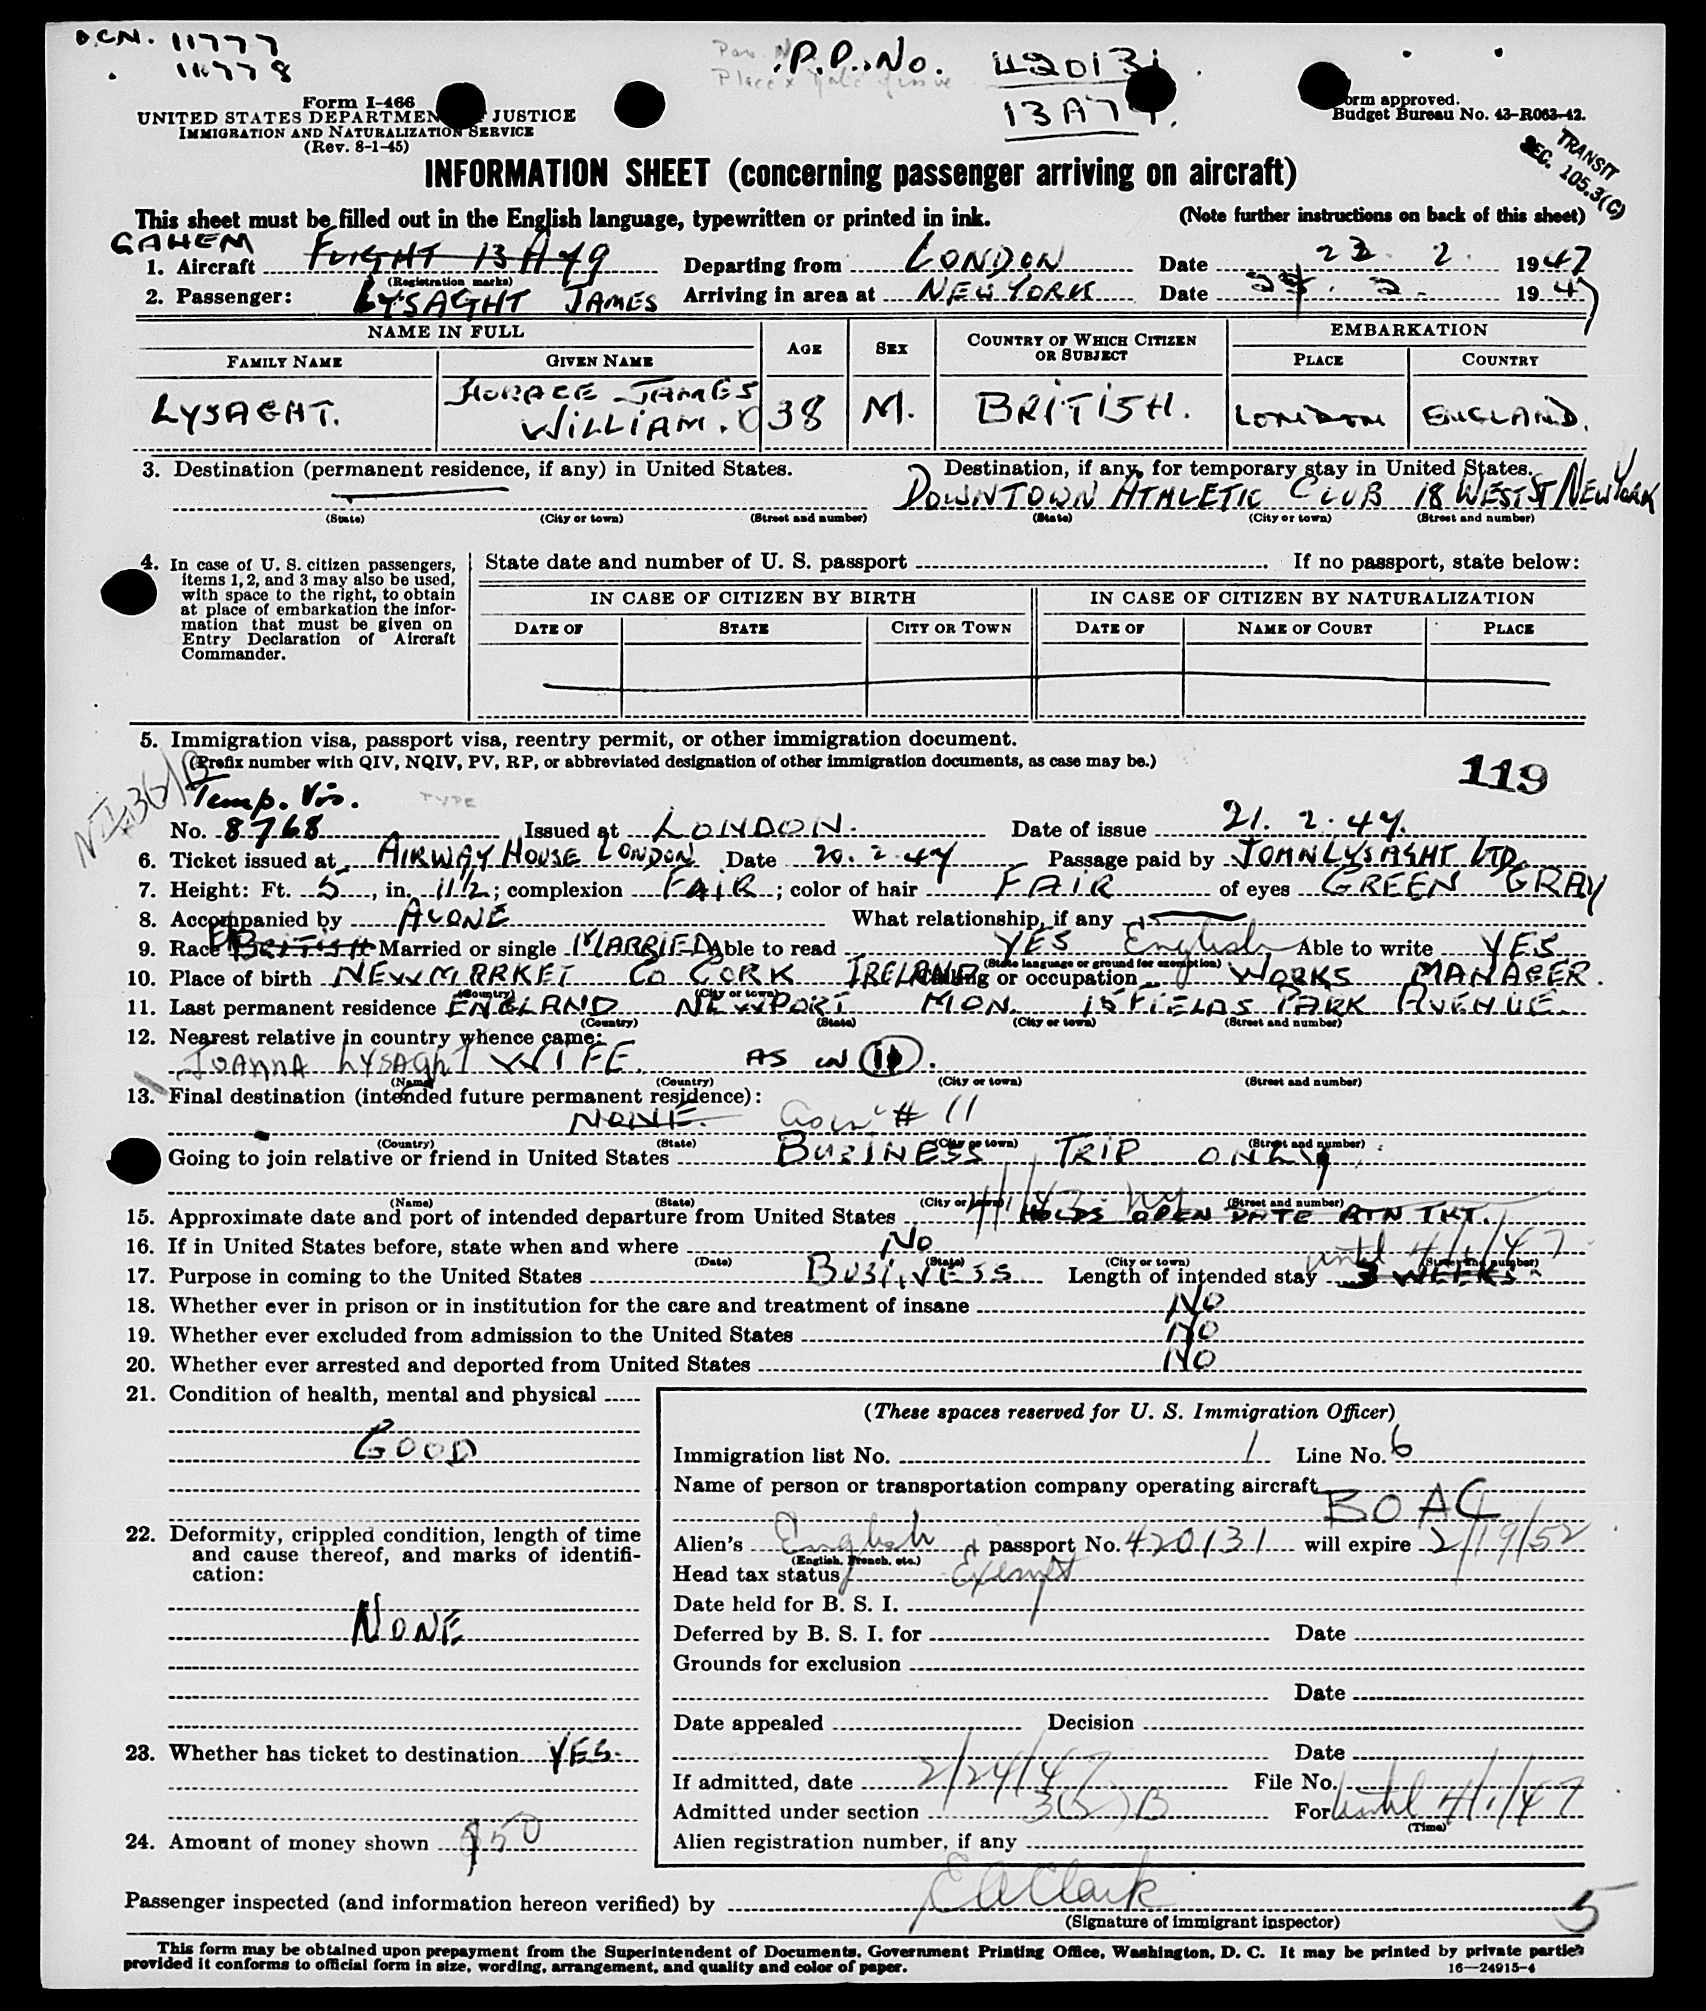 D.C.N. 11777
11778
P.P. No. 420131
13 A 79.
Form I-466
UNITED STATES DEPARTMENT OF JUSTICE
IMMIGRATION AND NATURALIZATION SERVICE
(Rev. 8-1-45)
Form approved.
Budget Bureau No. 43-R063-42.
TRANSIT
SEC. 105.3(C)
INFORMATION SHEET (concerning passenger arriving on aircraft)
This sheet must be filled out in the English language, typewritten or printed in ink. (Note further instructions on back of this sheet)
GAHEM
1. Aircraft FLIGHT 13 A 79 Departing from LONDON Date 23. 2. 1947
(Registration marks)
2. Passenger: LYSAGHT JAMES Arriving in area at NEW YORK Date 24. 2. 1947
NAME IN FULL AGE SEX COUNTRY OF WHICH CITIZEN OR SUBJECT EMBARKATION
FAMILY NAME GIVEN NAME PLACE COUNTRY
LYSAGHT. HORACE JAMES WILLIAM. O 38 M. BRITISH. LONDON ENGLAND.
3. Destination (permanent residence, if any) in United States. Destination, if any, for temporary stay in United States.
DOWNTOWN ATHLETIC CLUB 18 WEST ST NEW YORK
(State) (City or town) (Street and number) (State) (City or town) (Street and number)
4. In case of U. S. citizen passengers, items 1, 2, and 3 may also be used, with space to the right, to obtain at place of embarkation the information that must be given on Entry Declaration of Aircraft Commander.
State date and number of U. S. passport If no passport, state below:
IN CASE OF CITIZEN BY BIRTH IN CASE OF CITIZEN BY NATURALIZATION
DATE OF STATE CITY OR TOWN DATE OF NAME OF COURT PLACE
5. Immigration visa, passport visa, reentry permit, or other immigration document.
(Prefix number with QIV, NQIV, PV, RP, or abbreviated designation of other immigration documents, as case may be.)
119
Temp. Vis. TYPE
No. 8768 Issued at LONDON. Date of issue 21. 2. 47.
6. Ticket issued at AIRWAY HOUSE LONDON Date 20. 2. 47 Passage paid by JOHN LYSAGHT LTD.
7. Height: Ft. 5, in. 11 1/2; complexion FAIR; color of hair FAIR of eyes GREEN GRAY
8. Accompanied by ALONE What relationship, if any
9. Race BRITISH Married or single MARRIED Able to read YES English Able to write YES
(State language or ground for exemption)
10. Place of birth NEWMARKET Co CORK IRELAND Calling or occupation WORKS MANAGER.
(Country) (City or town)
11. Last permanent residence ENGLAND NEWPORT MON. 15 FIELDS PARK AVENUE.
(Country) (State) (City or town) (Street and number)
12. Nearest relative in country whence came:
JOANNA LYSAGHT WIFE. AS IN (11).
(Name) (Country) (City or town) (Street and number)
13. Final destination (intended future permanent residence):
NONE. # 11
(Country) (State) (City or town) (Street and number)
Going to join relative or friend in United States BUSINESS TRIP ONLY
(Name) (State) (City or town) (Street and number)
15. Approximate date and port of intended departure from United States 4/1/47. NY HOLDS OPEN DATE RTN TKT.
16. If in United States before, state when and where No
(Date) (State) (City or town) (Street and number)
17. Purpose in coming to the United States BUSINESS Length of intended stay 3 WEEKS until 4/1/47
18. Whether ever in prison or in institution for the care and treatment of insane NO
19. Whether ever excluded from admission to the United States NO
20. Whether ever arrested and deported from United States NO
21. Condition of health, mental and physical
GOOD
22. Deformity, crippled condition, length of time and cause thereof, and marks of identification:
NONE
23. Whether has ticket to destination YES.
24. Amount of money shown $50
(These spaces reserved for U. S. Immigration Officer)
Immigration list No. 1 Line No. 6
Name of person or transportation company operating aircraft
BOAC
Alien's English passport No. 420131 will expire 2/19/52
(English, French, etc.)
Head tax status Exempt
Date held for B. S. I.
Deferred by B. S. I. for Date
Grounds for exclusion
Date
Date appealed Decision
Date
If admitted, date 2/24/47 File No.
Admitted under section 3(2)B For until 4/1/47
(Time)
Alien registration number, if any
Passenger inspected (and information hereon verified) by EA Clark 5
(Signature of immigrant inspector)
This form may be obtained upon prepayment from the Superintendent of Documents, Government Printing Office, Washington, D. C. It may be printed by private parties
provided it conforms to official form in size, wording, arrangement, and quality and color of paper.
16—24915-4